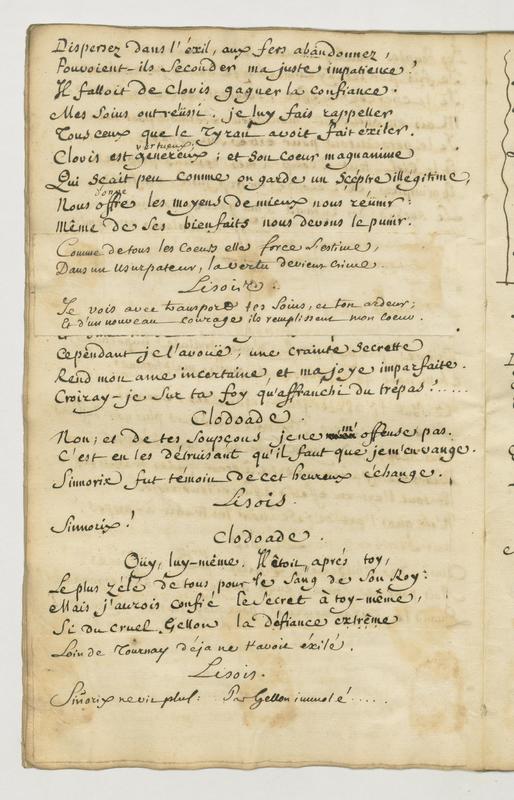 Dispersez dans l'éxil, aux fers abandonnez,
Pouvoient-ils Seconder ma juste impatience?
Il falloit de Clovis gagner la confiance.
Mes Soins ont réüssi. je luy fais rappeller
Tous ceux que le Tyran avoit fait éxiler.
vertueux;
Clovis est genereux; et Son Coeur magnanime
Qui Sçait peu comme on garde un Sçeptre illégitime,
donne
Nous offre les moyens de mieux nous réünir:
Même de Ses bienfaits nous devons le punir.
Comme de tous les Coeurs elle force l'estime,
Dans un Usurpateur, la vertu devient Crime.
Lisois.
Je vois avec transport tes Soins, et ton ardeur;
Et d'un nouveau courage ils remplissent mon Coeur.
Cependant je l'avoüe; une crainte Secrette
Rend mon ame incertaine, et ma joye imparfaite.
Croiray-je Sur ta foy qu'affranchi du trépas?......
Clodoade.
Non; et de tes Soupçons je ne m'en offense pas.
C'est en les détruisant qu'il faut que je m'en vange.
Sinnorix fut témoin de cet heureux échange.
Lisois.
Sinnorix!
Clodoade.
Oüy, luy-même. Il étoit, aprés toy,
Le plus zélé de tous pour le Sang de Son Roy:
Mais j'aurois confié le Secret à toy-même,
Si du cruel Gellon la défiance extrême
Loin de Tournay déja ne t'avoit éxilé.
Lisois.
Sinnorix ne vit plus: Par Gellon immolé.....